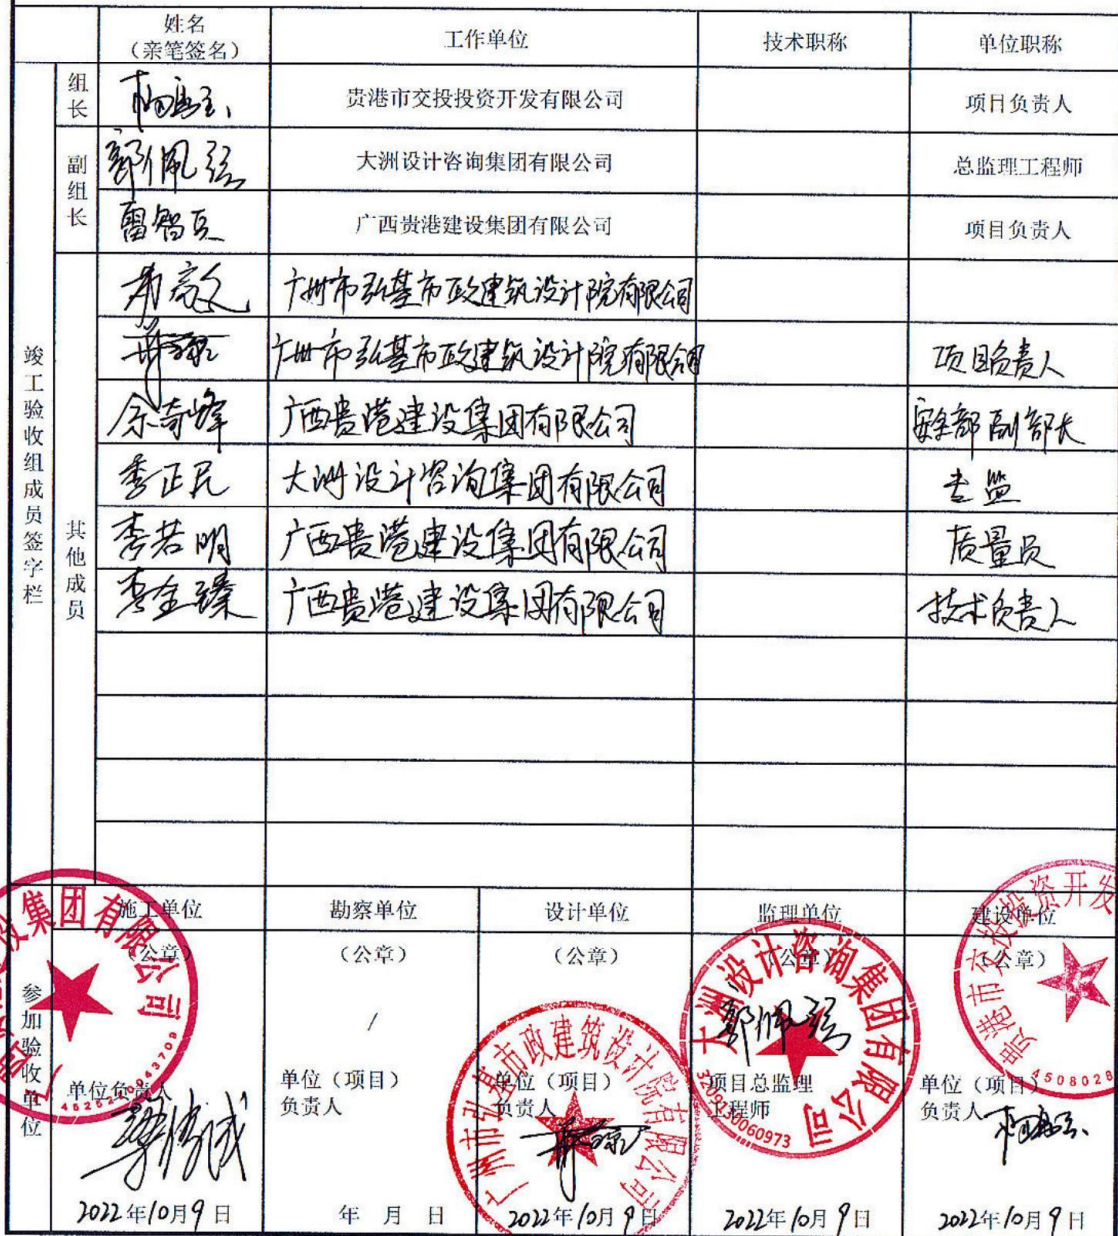 姓名
（亲笔签名）
工作单位
技术职称
单位职称
竣工验收组成员签字栏
组长
贵港市交投投资开发有限公司
项目负责人
副组长
郭佩弦
大洲设计咨询集团有限公司
总监理工程师
雷智
广西贵港建设集团有限公司
项目负责人
其他成员
广州市弘基市政建筑设计院有限公司
广州市弘基市政建筑设计院有限公司
项目负责人
余奇峰
广西贵港建设集团有限公司
安全部副部长
李正民
大洲设计咨询集团有限公司
专监
李若明
广西贵港建设集团有限公司
质量员
李金臻
广西贵港建设集团有限公司
技术负责人
参加验收单位
施工单位
（公章）
单位负责人
2022年10月9日
勘察单位
（公章）
/
单位（项目）
负责人
年 月 日
设计单位
（公章）
单位（项目）
负责人
2022年10月9日
监理单位
（公章）
郭佩弦
项目总监理
工程师
2022年10月9日
建设单位
（公章）
单位（项目）
负责人
2022年10月9日
集团有限公司
广州市弘基市政建筑设计院有限公司
大洲设计咨询集团有限公司
3209130060973
贵港市交投投资开发
4508028